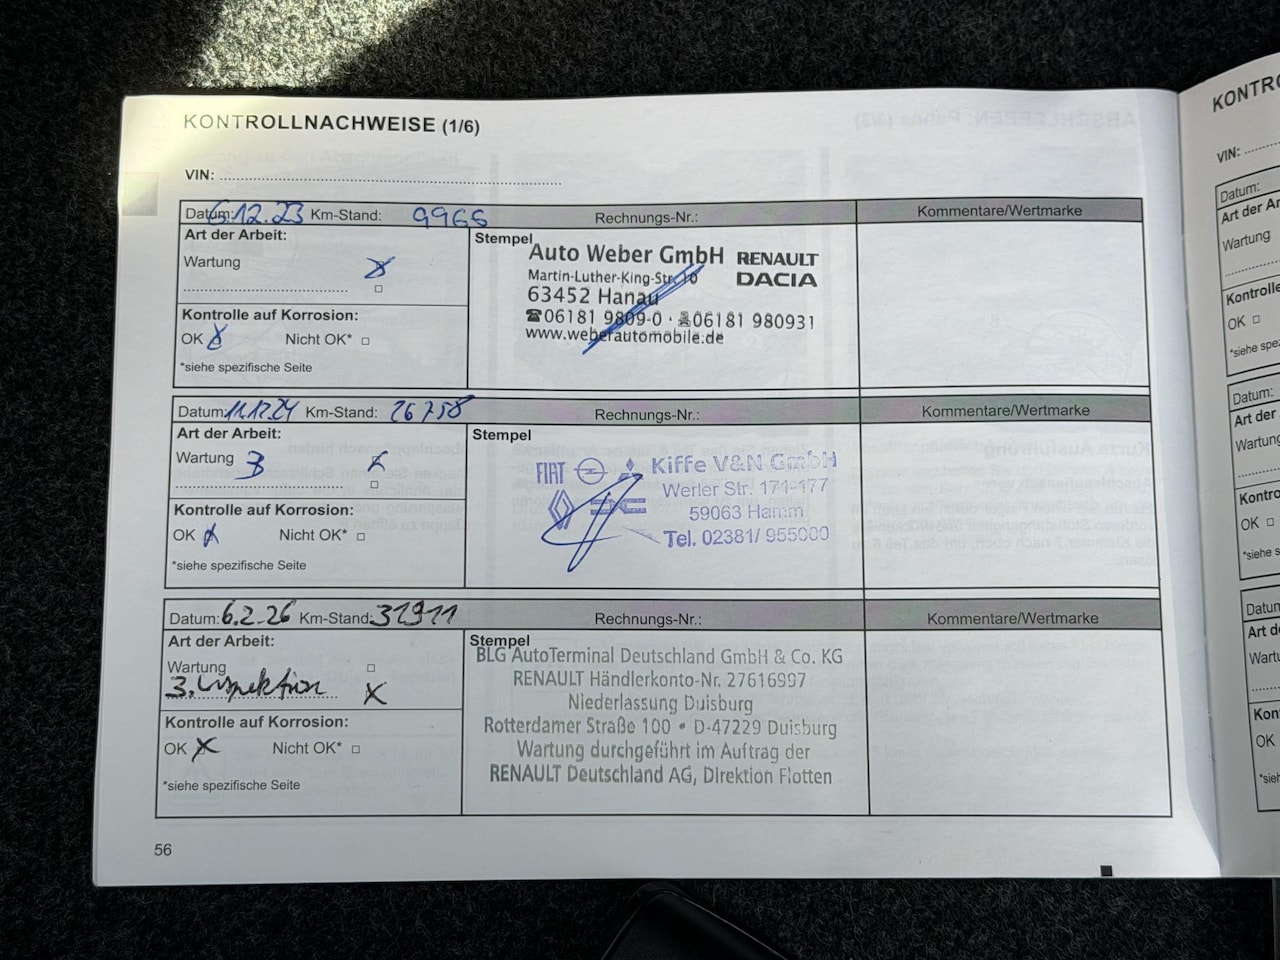 KONTROLLNACHWEISE (1/6)
VIN:
Datum: 6.12.23 Km-Stand: 9966 Rechnungs-Nr.: Kommentare/Wertmarke
Art der Arbeit:
Wartung
Kontrolle auf Korrosion:
OK Nicht OK*
*siehe spezifische Seite
Stempel
Auto Weber GmbH RENAULT
Martin-Luther-King-Str. 10 DACIA
63452 Hanau
☎06181 9809-0 · 06181 980931
www.weberautomobile.de
Datum: 11.12.24 Km-Stand: 26758 Rechnungs-Nr.: Kommentare/Wertmarke
Art der Arbeit:
Wartung B
Kontrolle auf Korrosion:
OK Nicht OK*
*siehe spezifische Seite
Stempel
FIAT Kiffe V&N GmbH
Werler Str. 171-177
59063 Hamm
Tel. 02381/ 955000
Datum: 6.2.26 Km-Stand: 31911 Rechnungs-Nr.: Kommentare/Wertmarke
Art der Arbeit:
Wartung
3. Inspektion
Kontrolle auf Korrosion:
OK Nicht OK*
*siehe spezifische Seite
Stempel
BLG AutoTerminal Deutschland GmbH & Co. KG
RENAULT Händlerkonto-Nr. 27616997
Niederlassung Duisburg
Rotterdamer Straße 100 • D-47229 Duisburg
Wartung durchgeführt im Auftrag der
RENAULT Deutschland AG, Direktion Flotten
56
KONTRO
VIN:
Datum:
Art der Ar
Wartung
Kontrolle
OK
*siehe spe
Datum:
Art der
Wartung
Kontro
OK
*siehe s
Datun
Art d
Wart
Kon
OK